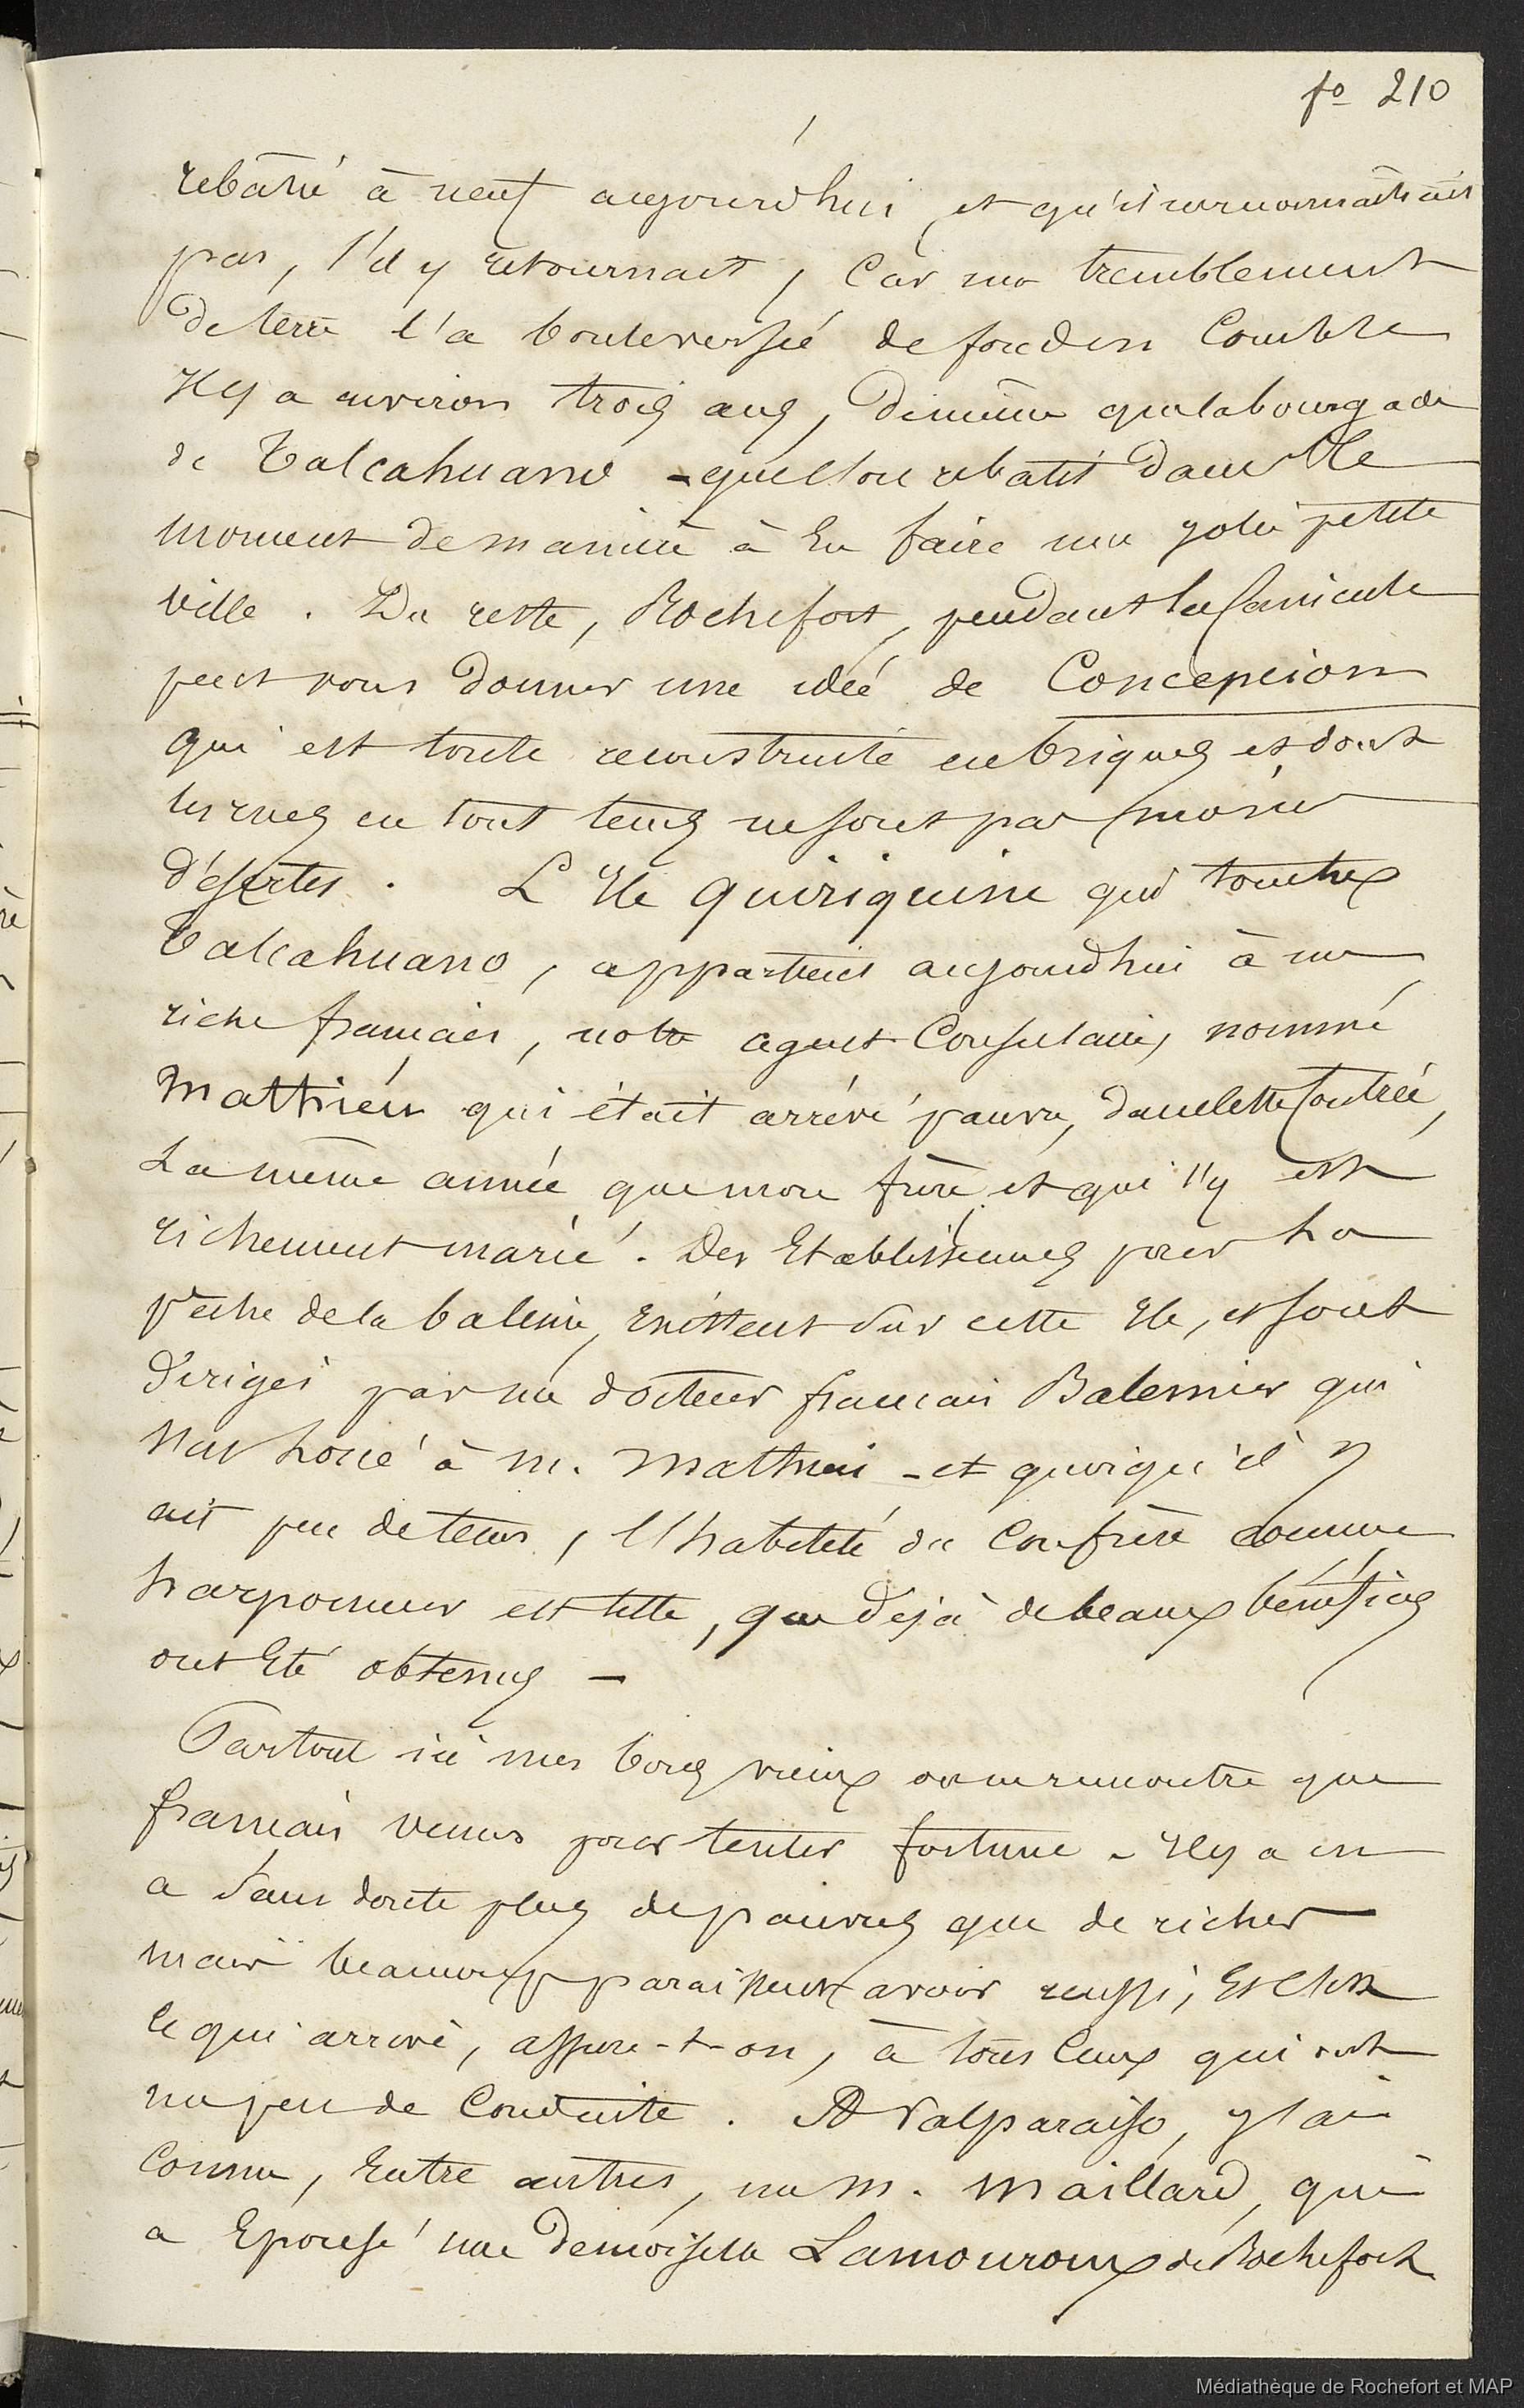 fo 210
rebâti à neuf aujourd'hui et qu'il ne reconnaîtrait
pas, s'il y retournait, Car un tremblement
de terre l'a bouleversé de fond en Comble
Il y a environ trois ans, de même que la bourgade
de Talcahuano - que l'on rebatit dans le
moment de manière à En faire une jolie petite
ville. Du reste, Rochefort, pendant la Canicule
peut vous donner une idée de Concepcion
qui est toute reconstruite en briques et dont
les rues en tout tems ne sont pas moins
désertes. L'Ile Quiriquine qui touche
Talcahuano, appartient aujourdhui à un
riche français, notre agent Consulaire, nommé
Mathieu qui était arrivé pauvre, dans cette Contrée,
La même année que mon frère et qui s'y est
richement marié. Des Etablissemens pour La
pêche de la baleine, Existent sur cette Ile, et sont
dirigés par un docteur français Balenier qui
s'est à M. Mathieu - et quoiqu'il y
ait peu de tems, l'habileté du Confrère comme
harponneur est telle, que déjà de beaux bénéfices
ont Eté obtenus -
Partout ici mes bons vieux on ne rencontre que
français venus pour tenter fortune - Il y a en
a Sans doute plus de pauvres que de riches
mais beaucoup paraissent avoir reussi, Et c'est
ce qui arrive, assure-t-on, à tous Ceux qui ont
un peu de Conduite. A Valparaiso, j'ai
Connu, Entre autres, un M. Maillard, qui
a Epousé une Demoiselle Lamouroux de Rochefort
Médiathèque de Rochefort et MAP